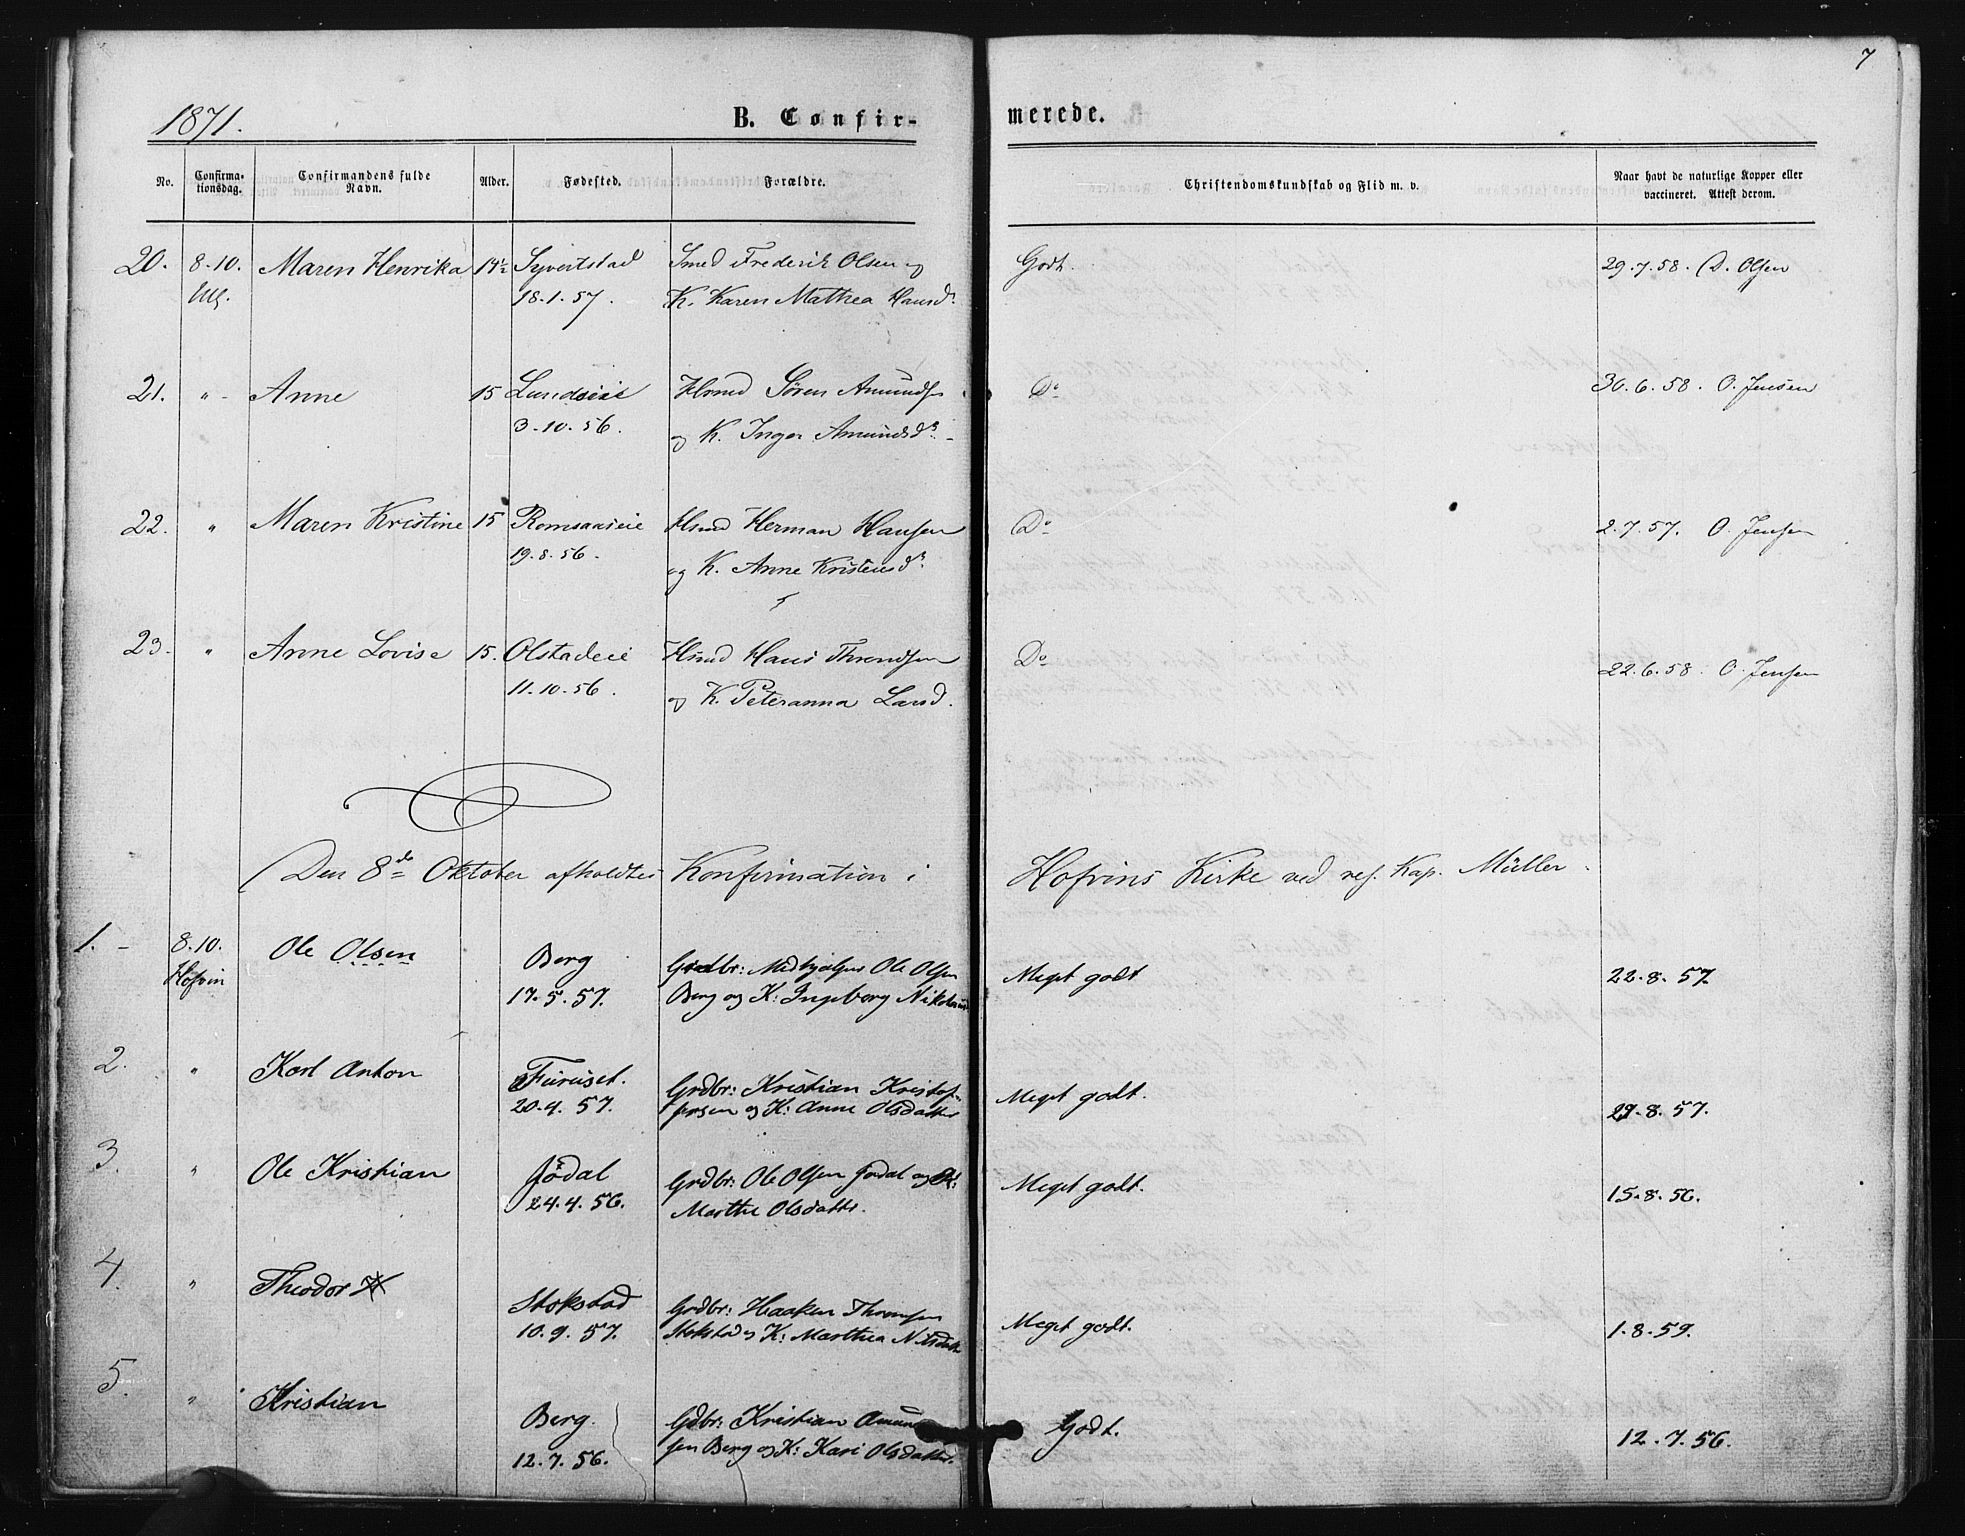 7
1871.
B. Confir-
merede.
No.
Confirma-
tionsdag.
Confirmandens fulde
Navn.
Alder.
Fødested.
Forældre.
Christendomskundskab og Flid m. v.
Naar havt de naturlige Kopper eller
vaccineret. Attest derom.
20. 8-10. Maren Henrika 14½ Syvertstad Smed Frederik Olsen og Godt. 29.7.58. D. Olsen
Ull. 18.1.57. K. Karen Mathea Hansdr
21. " Anne 15 Lundseie Hsmd Søren Amunds Do 30.6.58 O. Jensen
3-10.56. og K. Inger Amundsdr
22. " Maren Kristine 15 Romsaaseie Hsmd Herman Hansen Do 2.7.57. O. Jensen
19.8.56. og K. Anne Kristensdr
23. " Anne Lovise 15. Olstadeie Hsmd Hans Throndsen Do 22.6.58. O. Jensen
11.10.56. og K. Peteranna Larsd.
Den 8de Oktober afholdtes Konfirmation i Hofvins Kirke ved res. Kap. Müller.
1. 8.10. Ole Olsen Berg Grdbr: Medhjælper Ole Olsen Meget godt 22-8.57.
Hofvin 17.5.57. Berg og K: Ingeborg
2. " Karl Anton Furuset. Grdbr: Kristian Kristof- Meget godt. 29-8.57.
20.4.57. fersen og K: Anne Olsdatter
3. " Ole Kristian Jødal Grdbr: Ole Olsen Jødal og K: Meget godt. 15.8.56.
24.4.56. Marthe Olsdatter.
4. " Theodor Stokstad Grdbr: Haaken Thronsen Meget godt. 1.8.59.
10.9.57. Stokstad og K: Marthea Nilsdatter
5. " Kristian Berg. Gdbr: Kristian Amund Godt. 12.7.56.
12.7.56. sen Berg og K: Kari Olsdatter.